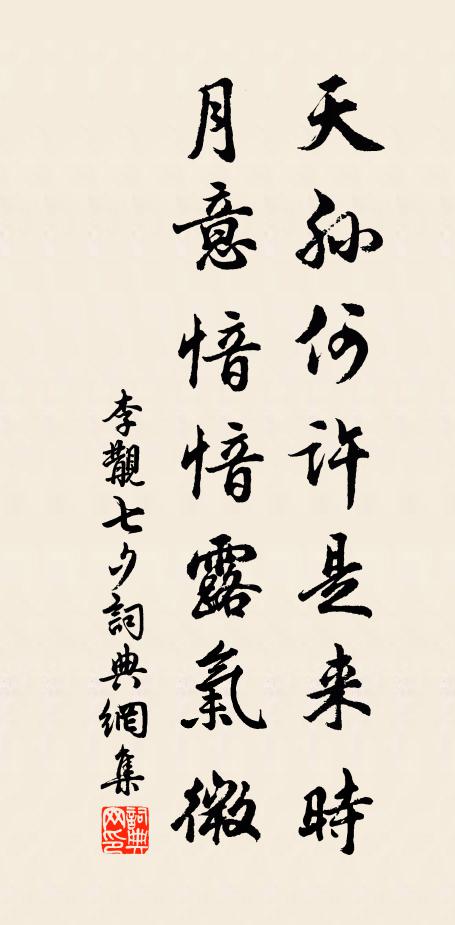 天孫何許是来時
月意愔愔露氣微
李觀七夕詞典網集
詞典網印